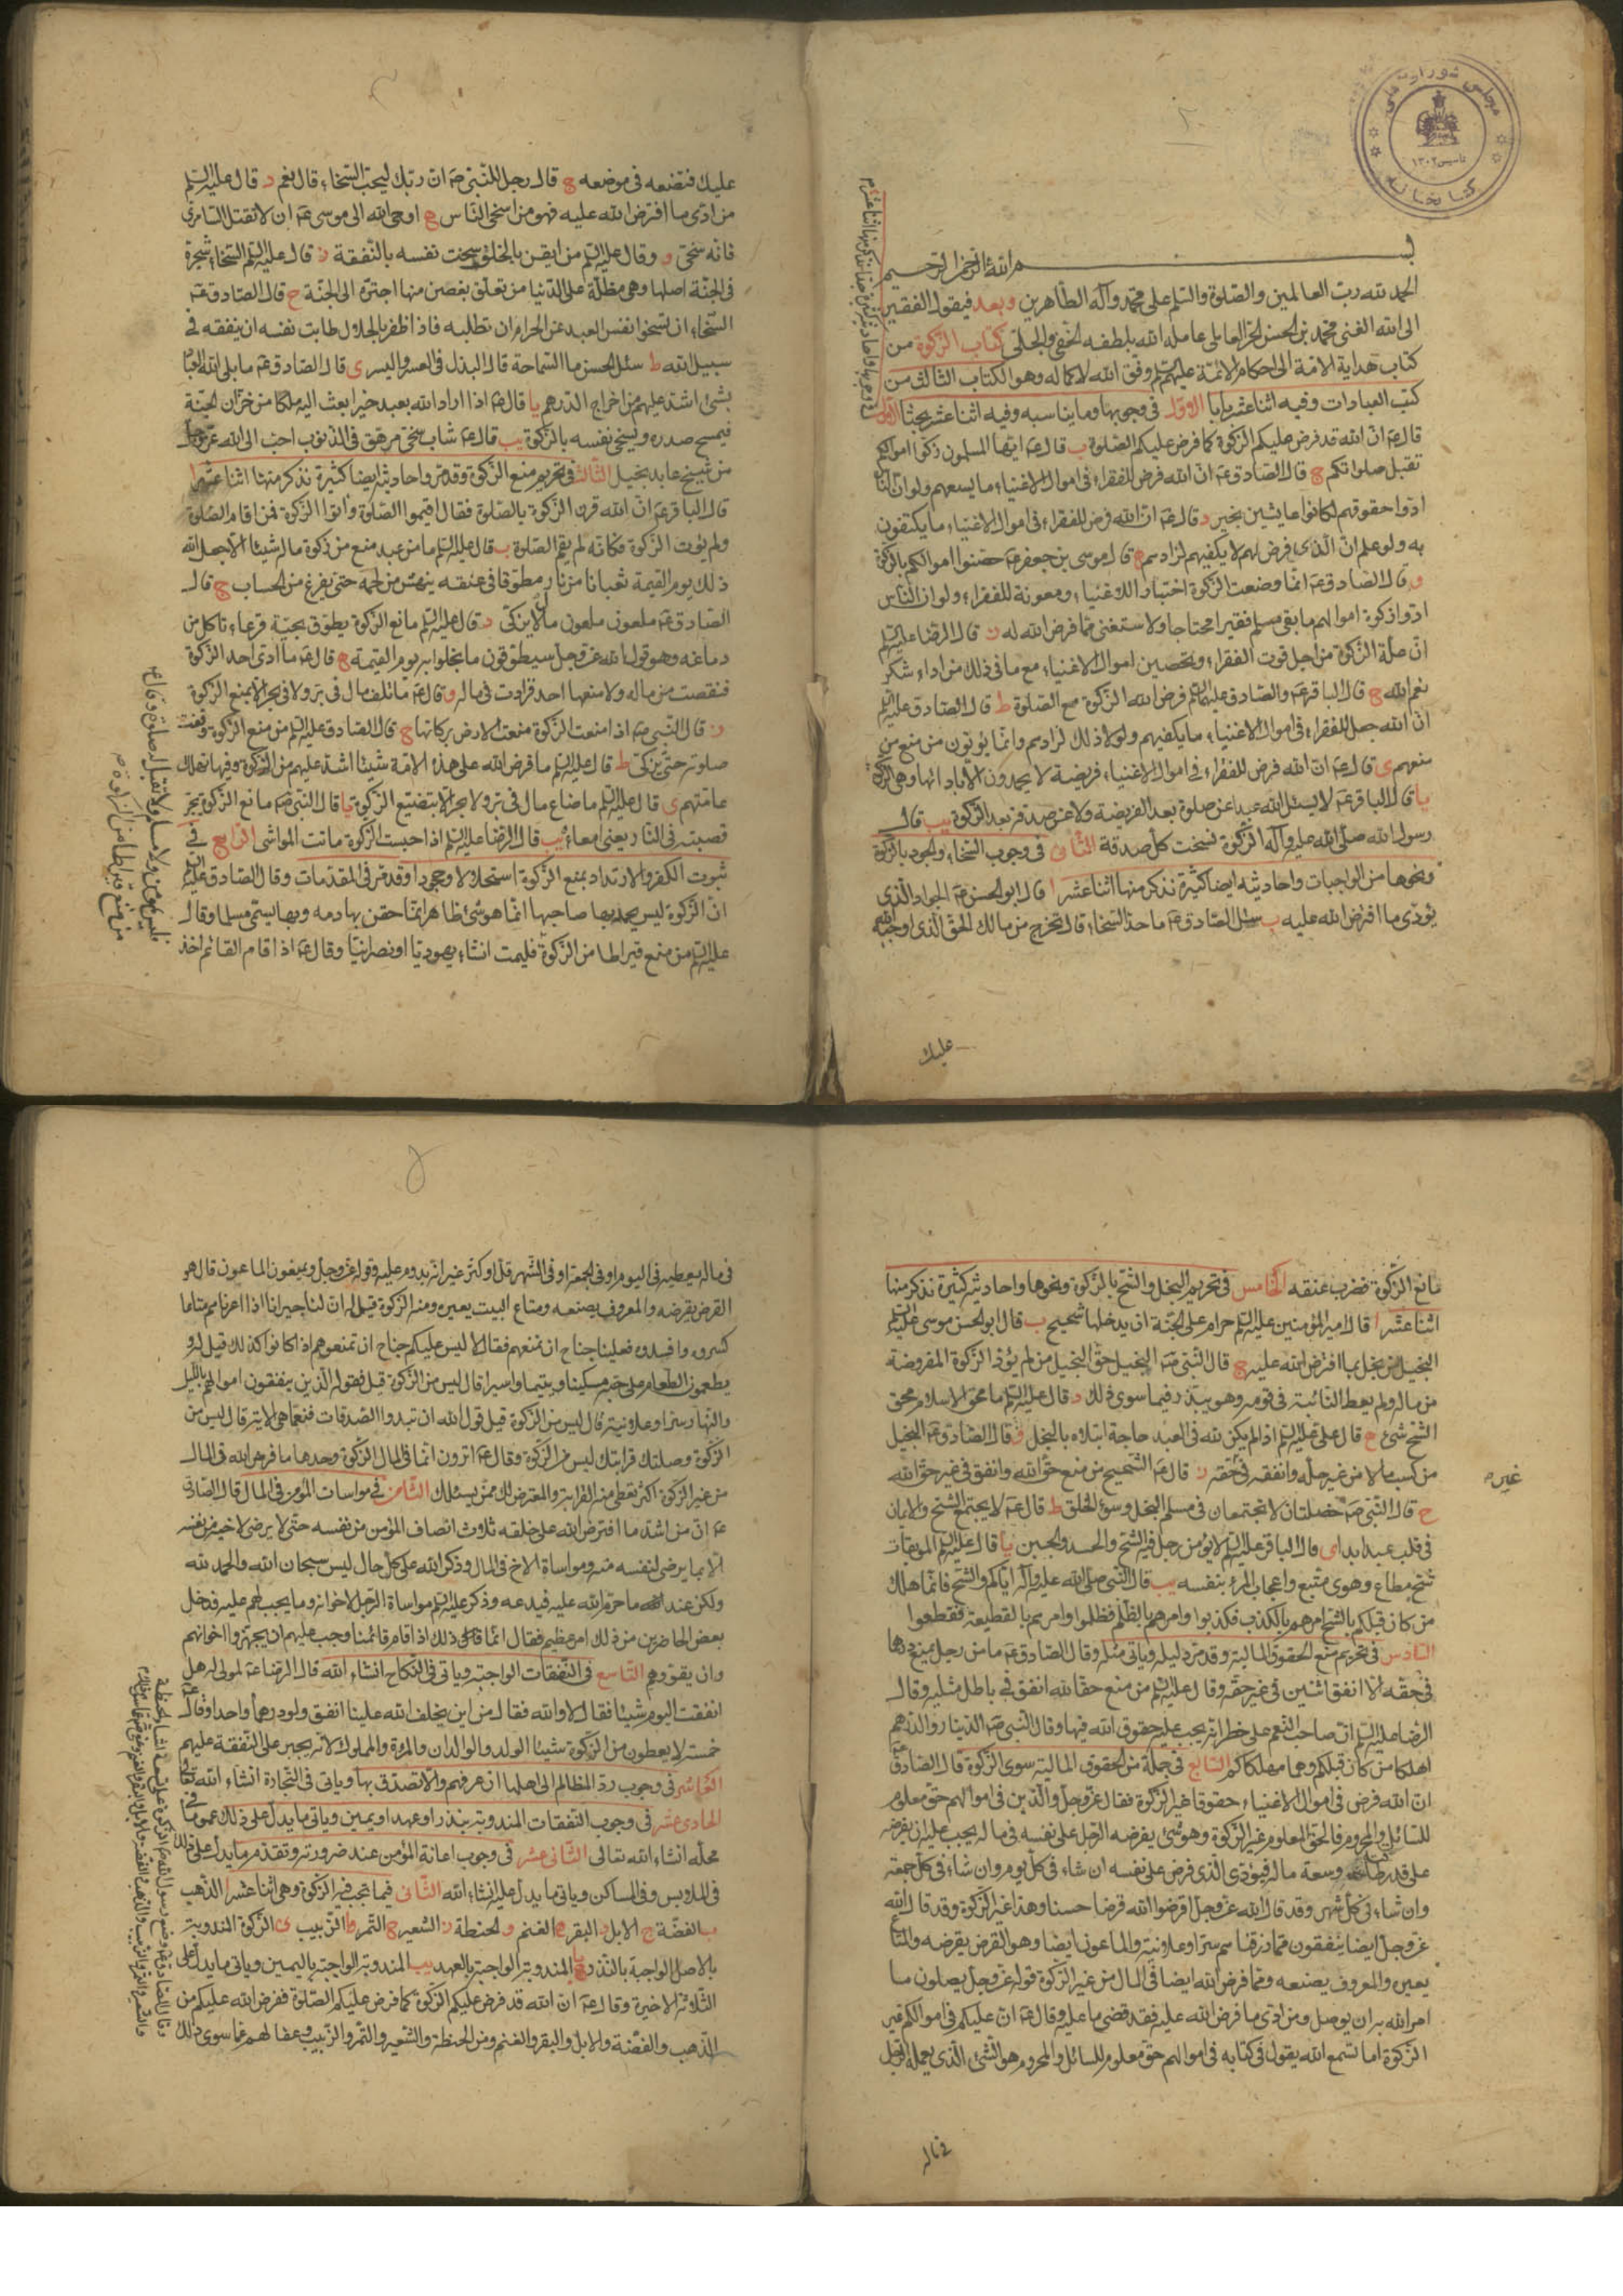 مجلس شورای ملی
تاسیس ۱۳۰۲
کتابخانه
بسم الله الرحمن الرحیم
الحمد لله رب العالمین والصلوة والسلم علی محمد وآله الطاهرین وبعد فیقول الفقیر
الی الله الغنی محمد بن الحسن الحر العاملی عامله الله بلطفه الخفی والجلی کتاب الزکوة من
کتاب هدایة الامة الی احکام الائمة علیهم السلم وفق الله لاکماله وهو الکتاب الثالث من
کتب العبادات وفیه اثناعشر بابا الاول فی وجوبها وما یناسبه وفیه اثناعشر بحثا الاول
قال ع ان الله قد فرض علیکم الزکوة کما فرض علیکم الصلوة ب قال ع ایها المسلمون زکوا اموالکم
تقبل صلوتکم ج قال الصادق ع ان الله فرض للفقراء فی اموال الاغنیاء ما یسعهم ولو ان الناس
ادوا حقوقهم لکانوا عایشین بخیر د قال ع ان الله فرض للفقراء فی اموال الاغنیاء ما یکتفون
به ولو علم ان الذی فرض لهم لا یکفیهم لزادهم ه قال موسی بن جعفر ع حصنوا اموالکم بالزکوة
و قال الصادق ع انما وضعت الزکوة اختبارا للاغنیاء ومعونة للفقراء ولو ان الناس
ادوا زکوة اموالهم ما بقی مسلم فقیرا محتاجا ولاستغنی بما فرض الله له ز قال الرضا علیه السلم
ان علة الزکوة من اجل قوت الفقراء وتحصین اموال الاغنیاء مع ما فی ذلک من اداء شکر
نعم الله ح قال الباقر ع والصادق علیهما السلم فرض الله الزکوة مع الصلوة ط قال الصادق علیه السلم
ان الله جعل للفقراء فی اموال الاغنیاء ما یکفیهم ولولا ذلک لزادهم وانما یؤتون من منع من
منعهم ی قال ع ان الله فرض للفقراء فی اموال الاغنیاء فریضة لا یحمدون الا بادائها وهی الزکوة
یا قال الباقر ع لا یسئل الله عبدا عن صلوة بعد الفریضة ولا عن صدقة بعد الزکوة یب قال
رسول الله صلی الله علیه وآله الزکوة نسخت کل صدقة الثانی فی وجوب السخاء والجود بالزکوة
ونحوها من الواجبات واحادیثه ایضا کثیرة نذکر منها اثناعشر ا قال ابو الحسن ع الجواد الذی
یؤدی ما افترض الله علیه ب سئل الصادق ع ما حد السخاء قال تخرج من مالک الحق الذی اوجبه الله
علیک
علیک فتضعه فی موضعه ج قال رجل للنبی ص ان ربک لیحب السخاء قال نعم د قال علیه السلم
من ادی ما افترض الله علیه فهو من اسخی الناس ه اوحی الله الی موسی ع ان لا تقتل السامری
فانه سخی و وقال علیه السلم من ایقن بالخلف سخت نفسه بالنفقة ز قال علیه السلم السخاء شجرة
فی الجنة اصلها وهی مظلة علی الدنیا من تعلق بغصن منها اجتره الی الجنة ح قال الصادق ع
السخاء ان تسخو نفس العبد عن الحرام ان تطلبه فاذا ظفر بالحلال طابت نفسه ان ینفقه فی
سبیل الله ط سئل الحسن ما السماحة قال البذل فی العسر والیسر ی قال الصادق ع ما بلی الله العباد
بشئ اشد علیهم من اخراج الدرهم یا قال ع اذا اراد الله بعبد خیرا بعث الیه ملکا من خزان الجنة
فیمسح صدره ویسخی نفسه بالزکوة یب قال ع شاب سخی مرهق فی الذنوب احب الی الله عز وجل
من شیخ عابد بخیل الثالث فی تحریم منع الزکوة وقد مر واحادیثه ایضا کثیرة نذکر منها اثناعشر ا
قال الباقر ع ان الله قرن الزکوة بالصلوة فقال اقیموا الصلوة وآتوا الزکوة فمن اقام الصلوة
ولم یؤت الزکوة فکانه لم یقم الصلوة ب قال علیه السلم ما من عبد منع من زکوة ماله شیئا الا جعل الله
ذلک یوم القیمة ثعبانا من نار مطوقا فی عنقه ینهش من لحمه حتی یفرغ من الحساب ج قال
الصادق ع ملعون ملعون مال لا یزکی د قال علیه السلم مانع الزکوة یطوق بحیة قرعاء تاکل من
دماغه وهو قول الله عز وجل سیطوقون ما بخلوا به یوم القیمة ه قال ع ما ادی احد الزکوة
فنقصت من ماله ولا منعها احد فزادت فی ماله و قال ع ما تلف مال فی بر ولا فی بحر الا بمنع الزکوة
ز قال النبی ص اذا منعت الزکوة منعت الارض برکاتها ح قال الصادق علیه السلم من منع الزکوة وقفت
صلوته حتی یزکی ط قال علیه السلم ما فرض الله علی هذه الامة شیئا اشد علیهم من الزکوة وفیها تهلک
عامتهم ی قال علیه السلم ما ضاع مال فی بر ولا بحر الا بتضییع الزکوة یا قال النبی ص مانع الزکوة یجر
قصبته فی النار یعنی امعاءه یب قال الرضا علیه السلم اذا حبست الزکوة ماتت المواشی الرابع فی
ثبوت الکفر والارتداد بمنع الزکوة استحلالا وجحودا وقد مر فی المقدمات وقال الصادق علیه السلم
ان الزکوة لیس یحمد بها صاحبها انما هو شئ ظاهر انما حقن بها دمه وبها یسمی مسلما وقال
علیه السلم من منع قیراطا من الزکوة فلیمت انشاء یهودیا او نصرانیا وقال ع اذا قام القائم اخذ
من منع قیراطا من الزکوة
فلیس بمؤمن ولا مسلم ولا تقبل له صلوة وقال ع
مانع الزکوة فضرب عنقه الخامس فی تحریم البخل والشح بالزکوة ونحوها واحادیثه کثیرة نذکر منها
اثناعشر ا قال امیر المؤمنین علیه السلم حرام علی الجنة ان یدخلها شحیح ب قال ابو الحسن موسی علیه السلم
البخیل من بخل بما افترض الله علیه ج قال النبی ص البخیل حق البخیل من لم یؤد الزکوة المفروضة
من ماله ولم یعط النائبة فی قومه وهو یبذر فیما سوی ذلک د قال علیه السلم ما محق الاسلام محق
الشح شئ ه قال علی علیه السلم اذا لم یکن لله فی العبد حاجة ابتلاه بالبخل و قال الصادق ع البخیل
من کسب مالا من غیر حله وانفقه فی غیر حقه ز قال ع الشحیح من منع حق الله وانفق فی غیر حق الله
ح قال النبی ص خصلتان لا تجتمعان فی مسلم البخل وسوء الخلق ط قال ع لا یجتمع الشح والایمان
فی قلب عبد ابدا ی قال الباقر علیه السلم لا یؤمن رجل فیه الشح والحسد والجبن یا قال علیه السلم الموبقات
شح مطاع وهوی متبع واعجاب المرء بنفسه یب قال النبی صلی الله علیه وآله ایاکم والشح فانما هلک
من کان قبلکم بالشح امرهم بالکذب فکذبوا وامرهم بالظلم فظلموا وامرهم بالقطیعة فقطعوا
السادس فی تحریم منع الحقوق المالیة وقد مر دلیله ویاتی مثله وقال الصادق ع ما من رجل یمنع درهما
فی حقه الا انفق اثنین فی غیر حقه وقال علیه السلم من منع حقا لله انفق فی باطل مثلیه وقال
الرضا علیه السلم ان صاحب النعم علی خطر انه یجب علیه حقوق الله فیها وقال النبی ص الدینار والدرهم
اهلکا من کان قبلکم وهما مهلکاکم السابع فی جملة من الحقوق المالیة سوی الزکوة قال الصادق ع
ان الله فرض فی اموال الاغنیاء حقوقا غیر الزکوة فقال عز وجل والذین فی اموالهم حق معلوم
للسائل والمحروم فالحق المعلوم غیر الزکوة وهو شئ یفرضه الرجل علی نفسه فی ماله یجب علیه ان یفرضه
علی قدر طاقته وسعة ماله فیؤدی الذی فرض علی نفسه ان شاء فی کل یوم وان شاء فی کل جمعة
وان شاء فی کل شهر وقد قال الله عز وجل اقرضوا الله قرضا حسنا وهذا غیر الزکوة وقد قال الله
عز وجل ایضا ینفقون مما رزقناهم سرا وعلانیة والماعون ایضا وهو القرض یقرضه والمتاع
یعیره والمعروف یصنعه ومما فرض الله ایضا فی المال من غیر الزکوة قوله عز وجل یصلون ما
امر الله به ان یوصل ومن ادی ما فرض الله علیه فقد قضی ما علیه وقال ع ان علیکم فی اموالکم غیر
الزکوة اما تسمع الله یقول فی کتابه فی اموالهم حق معلوم للسائل والمحروم هو الشئ الذی یعمله الرجل
فی ماله
فی ماله یعطیه فی الیوم او فی الجمعة او فی الشهر قل او کثر غیر انه یدوم علیه وقوله عز وجل ویمنعون الماعون قال هو
القرض یقرضه والمعروف یصنعه ومتاع البیت یعیره ومنه الزکوة قیل له ان لنا جیرانا اذا اعرناهم متاعا
کسروه وافسدوه فعلینا جناح ان نمنعهم فقال لا لیس علیکم جناح ان تمنعوهم اذا کانوا کذلک قیل له و
یطعمون الطعام علی حبه مسکینا ویتیما واسیرا قال لیس من الزکوة قیل فقوله الذین ینفقون اموالهم باللیل
والنهار سرا وعلانیة قال لیس من الزکوة قیل قول الله ان تبدوا الصدقات فنعما هی الآیة قال لیس من
الزکوة وصلتک قرابتک لیس من الزکوة وقال ع اترون انما فی المال الزکوة وحدها ما فرض الله فی المال
من غیر الزکوة اکثر تعطی منه القرابة والمعترض لک ممن یسئلک الثامن فی مواسات المؤمن فی المال قال الصادق
ع ان من اشد ما افترض الله علی خلقه ثلاث انصاف المؤمن من نفسه حتی لا یرضی لاخیه من نفسه
الا بما یرضی لنفسه منه ومواساة الاخ فی المال وذکر الله علی کل حال لیس سبحان الله والحمد لله
ولکن عند ما حرم الله علیه فیدعه وذکر علیه السلم مواساة الرجل لاخوانه وما یجب لهم علیه فدخل
بعض الحاضرین من ذلک امر عظیم فقال انما ذلک اذا قام قائمنا وجب علیهم ان یجهزوا اخوانهم
وان یقووهم التاسع فی النفقات الواجبة ویاتی فی النکاح انشاء الله قال الرضا ع لمولی له هل
انفقت الیوم شیئا فقال لا والله فقال من این یخلف الله علینا انفق ولو درهما واحدا وقال ع
خمسة لا یعطون من الزکوة شیئا الولد والوالدان والمرءة والمملوک لانه یجبر علی النفقة علیهم
العاشر فی وجوب رد المظالم الی اهلها ان عرفهم والا تصدق بها ویاتی فی التجارة انشاء الله تعالی
الحادی عشر فی وجوب النفقات المندوبة بنذر او عهد او یمین ویاتی ما یدل علی ذلک عموما فی
محله انشاء الله تعالی الثانی عشر فی وجوب اعانة المؤمن عند ضرورته وتقدم ما یدل علی ذلک
فی الملابس وفی المساکن ویاتی ما یدل علیه انشاء الله الثانی فیما تجب فیه الزکوة وهی اثناعشر ا الذهب
ب الفضة ج الابل د البقر ه الغنم و الحنطة ز الشعیر ح التمر ط الزبیب ی الزکوة المندوبة
بالاصل الواجبة بالنذر یا المندوبة الواجبة بالعهد یب المندوبة الواجبة بالیمین ویاتی ما یدل علی
الثلاثة الاخیرة وقال ع ان الله قد فرض علیکم الزکوة کما فرض علیکم الصلوة ففرض الله علیکم من
الذهب والفضة والابل والبقر والغنم ومن الحنطة والشعیر والتمر والزبیب وعفا لهم عما سوی ذلک